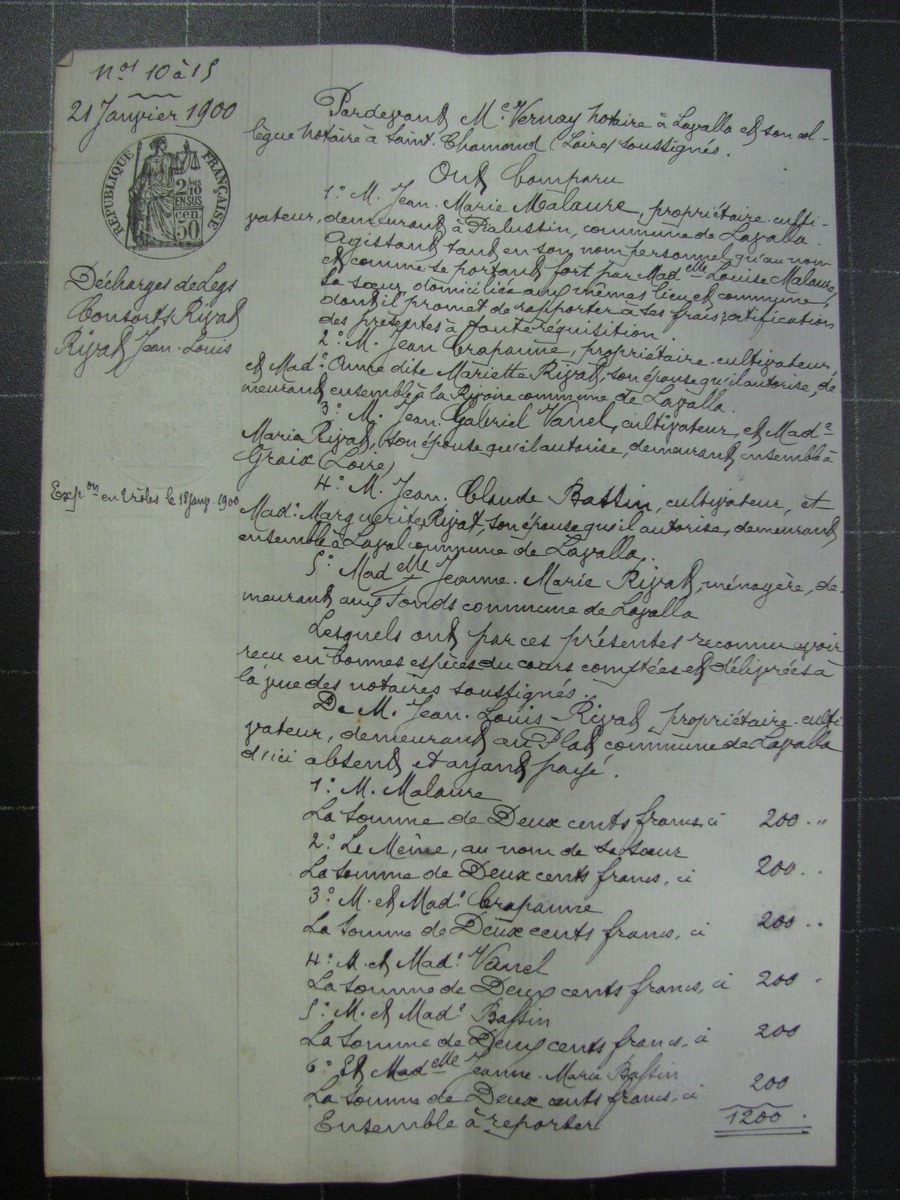 Nos 10 à 15
21 Janvier 1900
RÉPUBLIQUE FRANÇAISE
2/10 EN SUS
50 cen
Décharges de Legs
Consorts Rivat
Rivat Jean-Louis
Expon en 2 rôles le 18 janv. 1900
Pardevant Me Vernay notaire à Lavalla et son col-
lègue notaire à Saint-Chamond (Loire) soussignés.
Ont Comparu
1° M. Jean-Marie Malaure, propriétaire-culti-
vateur, demeurant à commune de Lavalla.
Agissant tant en son nom personnel qu'au nom
et comme se portant fort par Madelle Louise Malaure,
sa sœur domiciliée aux mêmes lieu et commune,
dont il promet de rapporter à ses frais ratification
des présentes à toute réquisition.
2° M. Jean Crapanne, propriétaire-cultivateur,
et Made Anne dite Mariette Rivat, son épouse qu'il autorise, de-
meurant ensemble à la Rivoire commune de Lavalla.
3° M. Jean Gabriel Vanel, cultivateur, et Made
Maria Rivat, son épouse qu'il autorise, demeurant ensemble à
Graix (Loire)
4° M. Jean-Claude Bassin, cultivateur, et
Made Marguerite Rivat, son épouse qu'il autorise, demeurant
ensemble à Laval commune de Lavalla.
5° Madelle Jeanne-Marie Rivat, ménagère, de-
meurant aux Fonds commune de Lavalla
Lesquels ont par ces présentes reconnu avoir
reçu en bonnes espèces du cours comptées et délivrées à
la vue des notaires soussignés.
De M. Jean-Louis Rivat, propriétaire-culti-
vateur, demeurant au Plat commune de Lavalla
d'ici absent et ayant payé.
1° M. Malaure
La somme de Deux cents francs, ci 200 . "
2° Le Même, au nom de sa sœur
La somme de Deux cents francs, ci 200 . .
3° M. et Made Crapanne
La somme de Deux cents francs, ci 200 . .
4° M. et Made Vanel
La somme de Deux cents francs, ci 200 .
5° M. et Made Bassin
La somme de Deux cents francs, ci 200
6° Et Madelle Jeanne-Marie Bassin
La somme de Deux cents francs, ci 200
Ensemble à reporter 1200 .